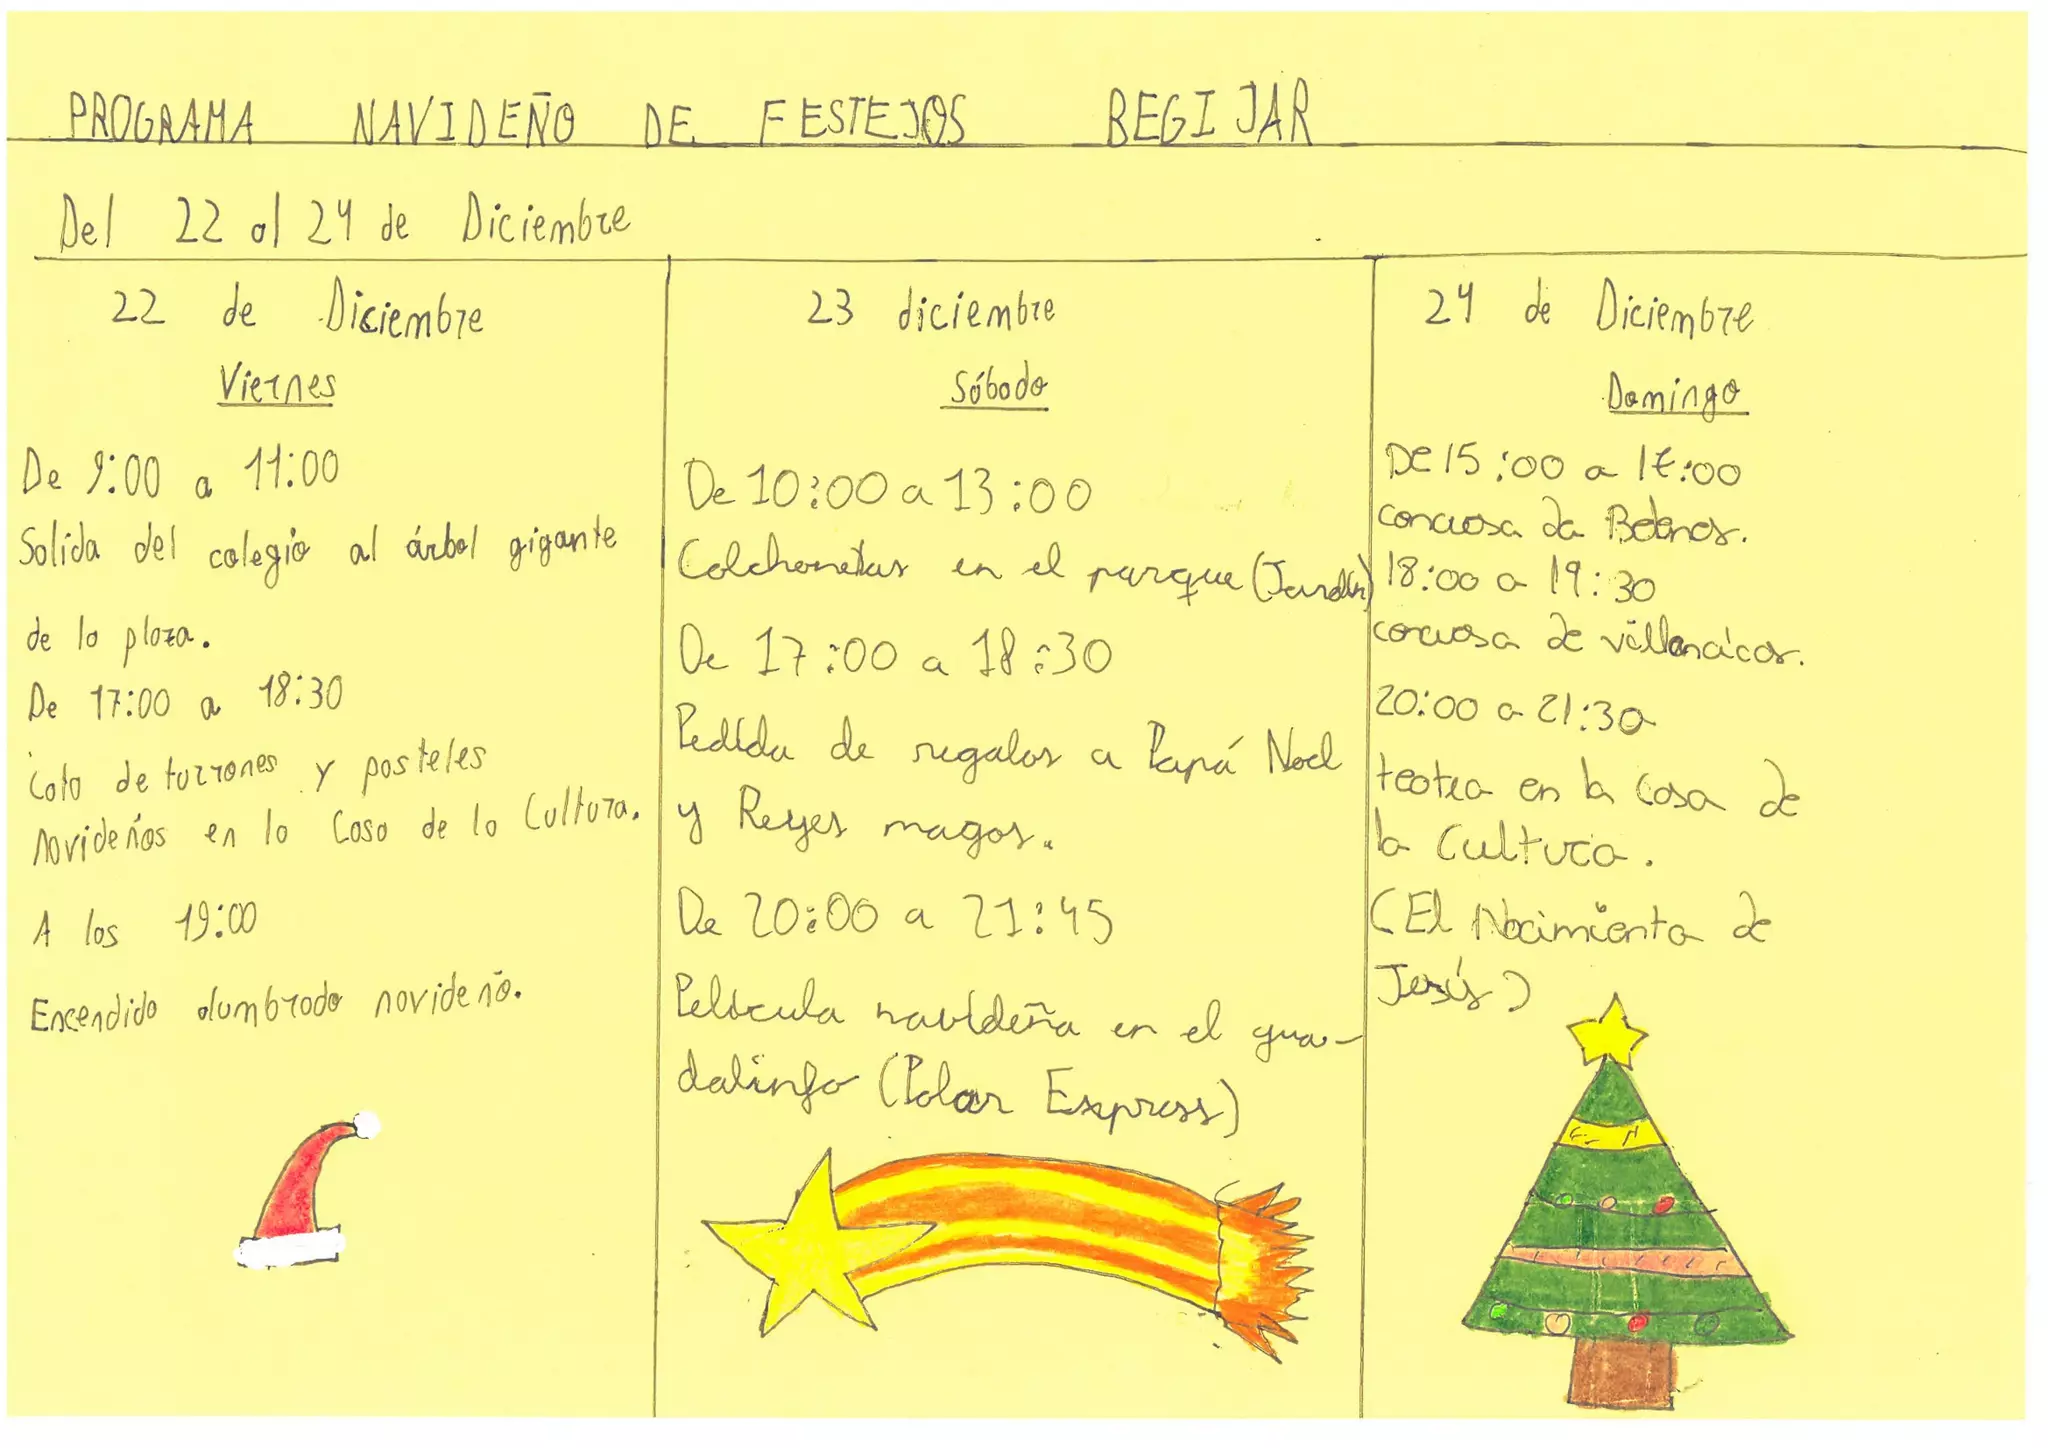 PROGRAMA NAVIDEÑO DE FESTEJOS BEGIJAR
Del 22 al 24 de Diciembre
22 de Diciembre
Viernes
De 9:00 a 11:00
Salida del colegio al árbol gigante
de la plaza.
De 17:00 a 18:30
Cata de turrones y pasteles
navideños en la Casa de la Cultura.
A las 19:00
Encendido alumbrado navideño.
23 diciembre
Sábado
De 10:00 a 13:00
Colchonetas en el parque (Jardín)
De 17:00 a 18:30
Pedida de regalos a Papá Noel
y Reyes magos.
De 20:00 a 21:45
Película navideña en el gua-
dalinfo (Polar Express)
24 de Diciembre
Domingo
De 15:00 a 17:00
concurso de Belenes.
18:00 a 19:30
concurso de villancicos.
20:00 a 21:30
teatro en la casa de
la Cultura.
(El Nacimiento de
Jesús)